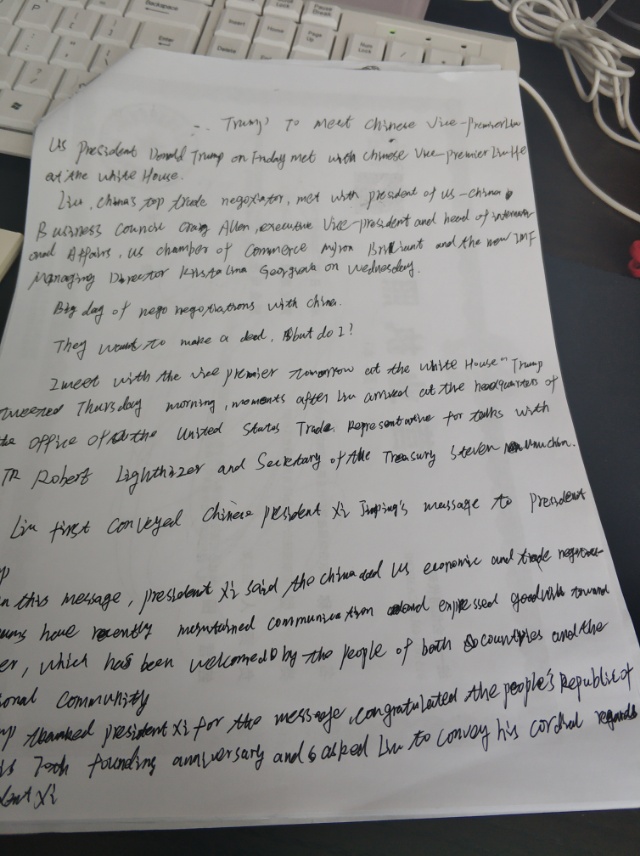 Trump to meet Chinese Vice-premier Liu
US president Donald Trump on Friday met with Chinese Vice-premier Liu He
at the white House.
Liu, china's top trade negotiator, met with president of us-china
Business Council Craig Allen, executive Vice-president and head of internati
onal Affairs, us chamber of Commerce Myron Brilliant and the now IMF
Managing Director Kristalina Georgieva on wednesday.
Big day of nego negotiations with china.
They want to make a deal, but do I?
I meet with the vice premier tomorrow at the white House" Trump
tweeted Thursday morning, moments after Liu arrived at the headquarters of
the office of the United States Trade Representative for talks with
TR Robert Lighthizer and Secretary of the Treasury Steven Mnuchin.
Liu first conveyed Chinese president Xi Jinping's message to president
p
n this message, president Xi said the china and US economic and trade negotiat
eams have recently maintained communication and expressed goodwill toward
er, which has been welcomed by the people of both countries and the
ional community
mp thanked president Xi for the message, congratulated the people's Republic of
is 70th founding anniversary and asked Liu to convey his cordial regards
dent Xi
Insert
Home
Page Up
Delete
End
Pause Break
Num Lock
Enter